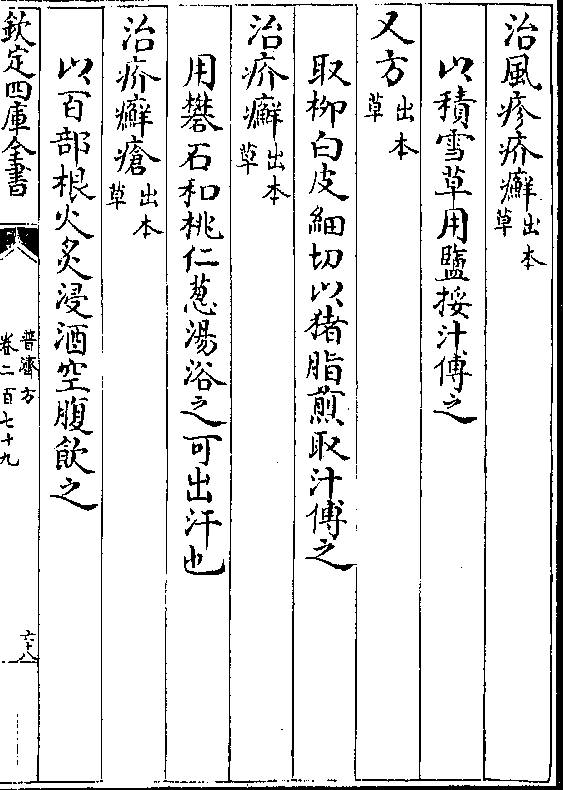 治風疹疥癬出本草
以積雪草用鹽挼汁傅之
又方出本草
取柳白皮細切以猪脂煎取汁傅之
治疥癬出本草
用礬石和桃仁葱湯浴之可出汗也
治疥癬瘡出本草
以百部根火炙浸酒空腹飲之
欽定四庫全書
普濟方
卷二百七十九
六十八